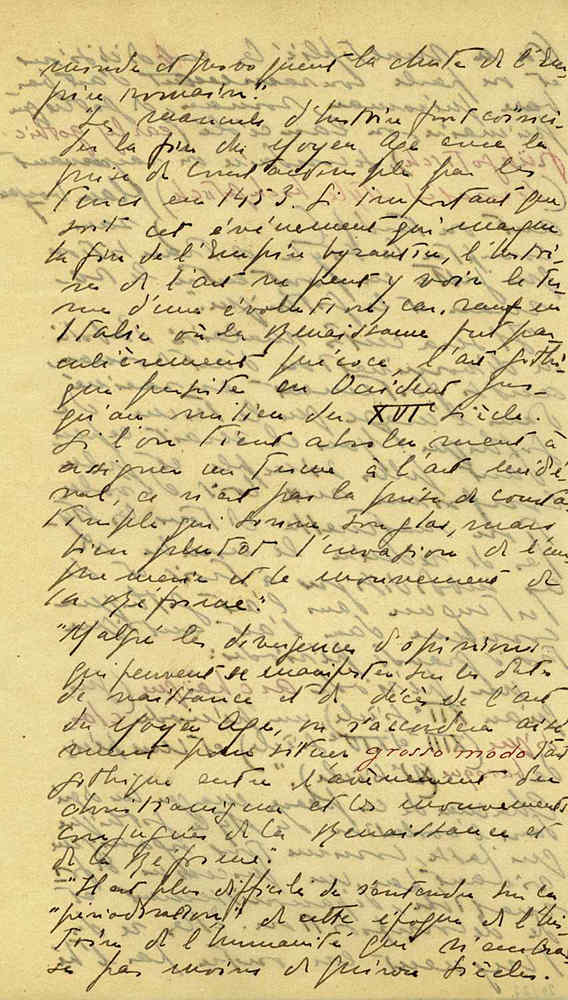 monde et provoquent la chute de l'Em-
pire romain."
"Les manuels d'histoire font coïnci-
der la fin du Moyen Age avec la
prise de Constantinople par les
Turcs en 1453. Si important que
soit cet événement qui marque
la fin de l'Empire byzantin, l'histoi-
re de l'art ne peut y voir le ter-
me d'une évolution; car, sauf en
Italie où la Renaissance fut par
culièrement précoce, l'art gothi-
que persiste en Occident jus-
qu'au milieu du XVIe siècle.
Si l'on tient absolument à
assigner un terme à l'art médié-
val, ce n'est pas la prise de Constan
tinople qui sonne son glas, mais
bien plutôt l'invention de l'im
primerie et le mouvement de
la Réforme."
"Malgré les divergences d'opinions
qui peuvent se manifester sur les dates
de naissance et de décès de l'art
du Moyen Age, on s'accordera aisé
ment pour situer grosso modo l'art
gothique entre l'avènement du
christianisme et les mouvements
conjugués de la Renaissance et
de la Réforme."
"Il est plus difficile de s'entendre sur la
"périodisation" de cette époque de l'his
toire de l'humanité qui n'embras
se pas moins de quinze siècles.